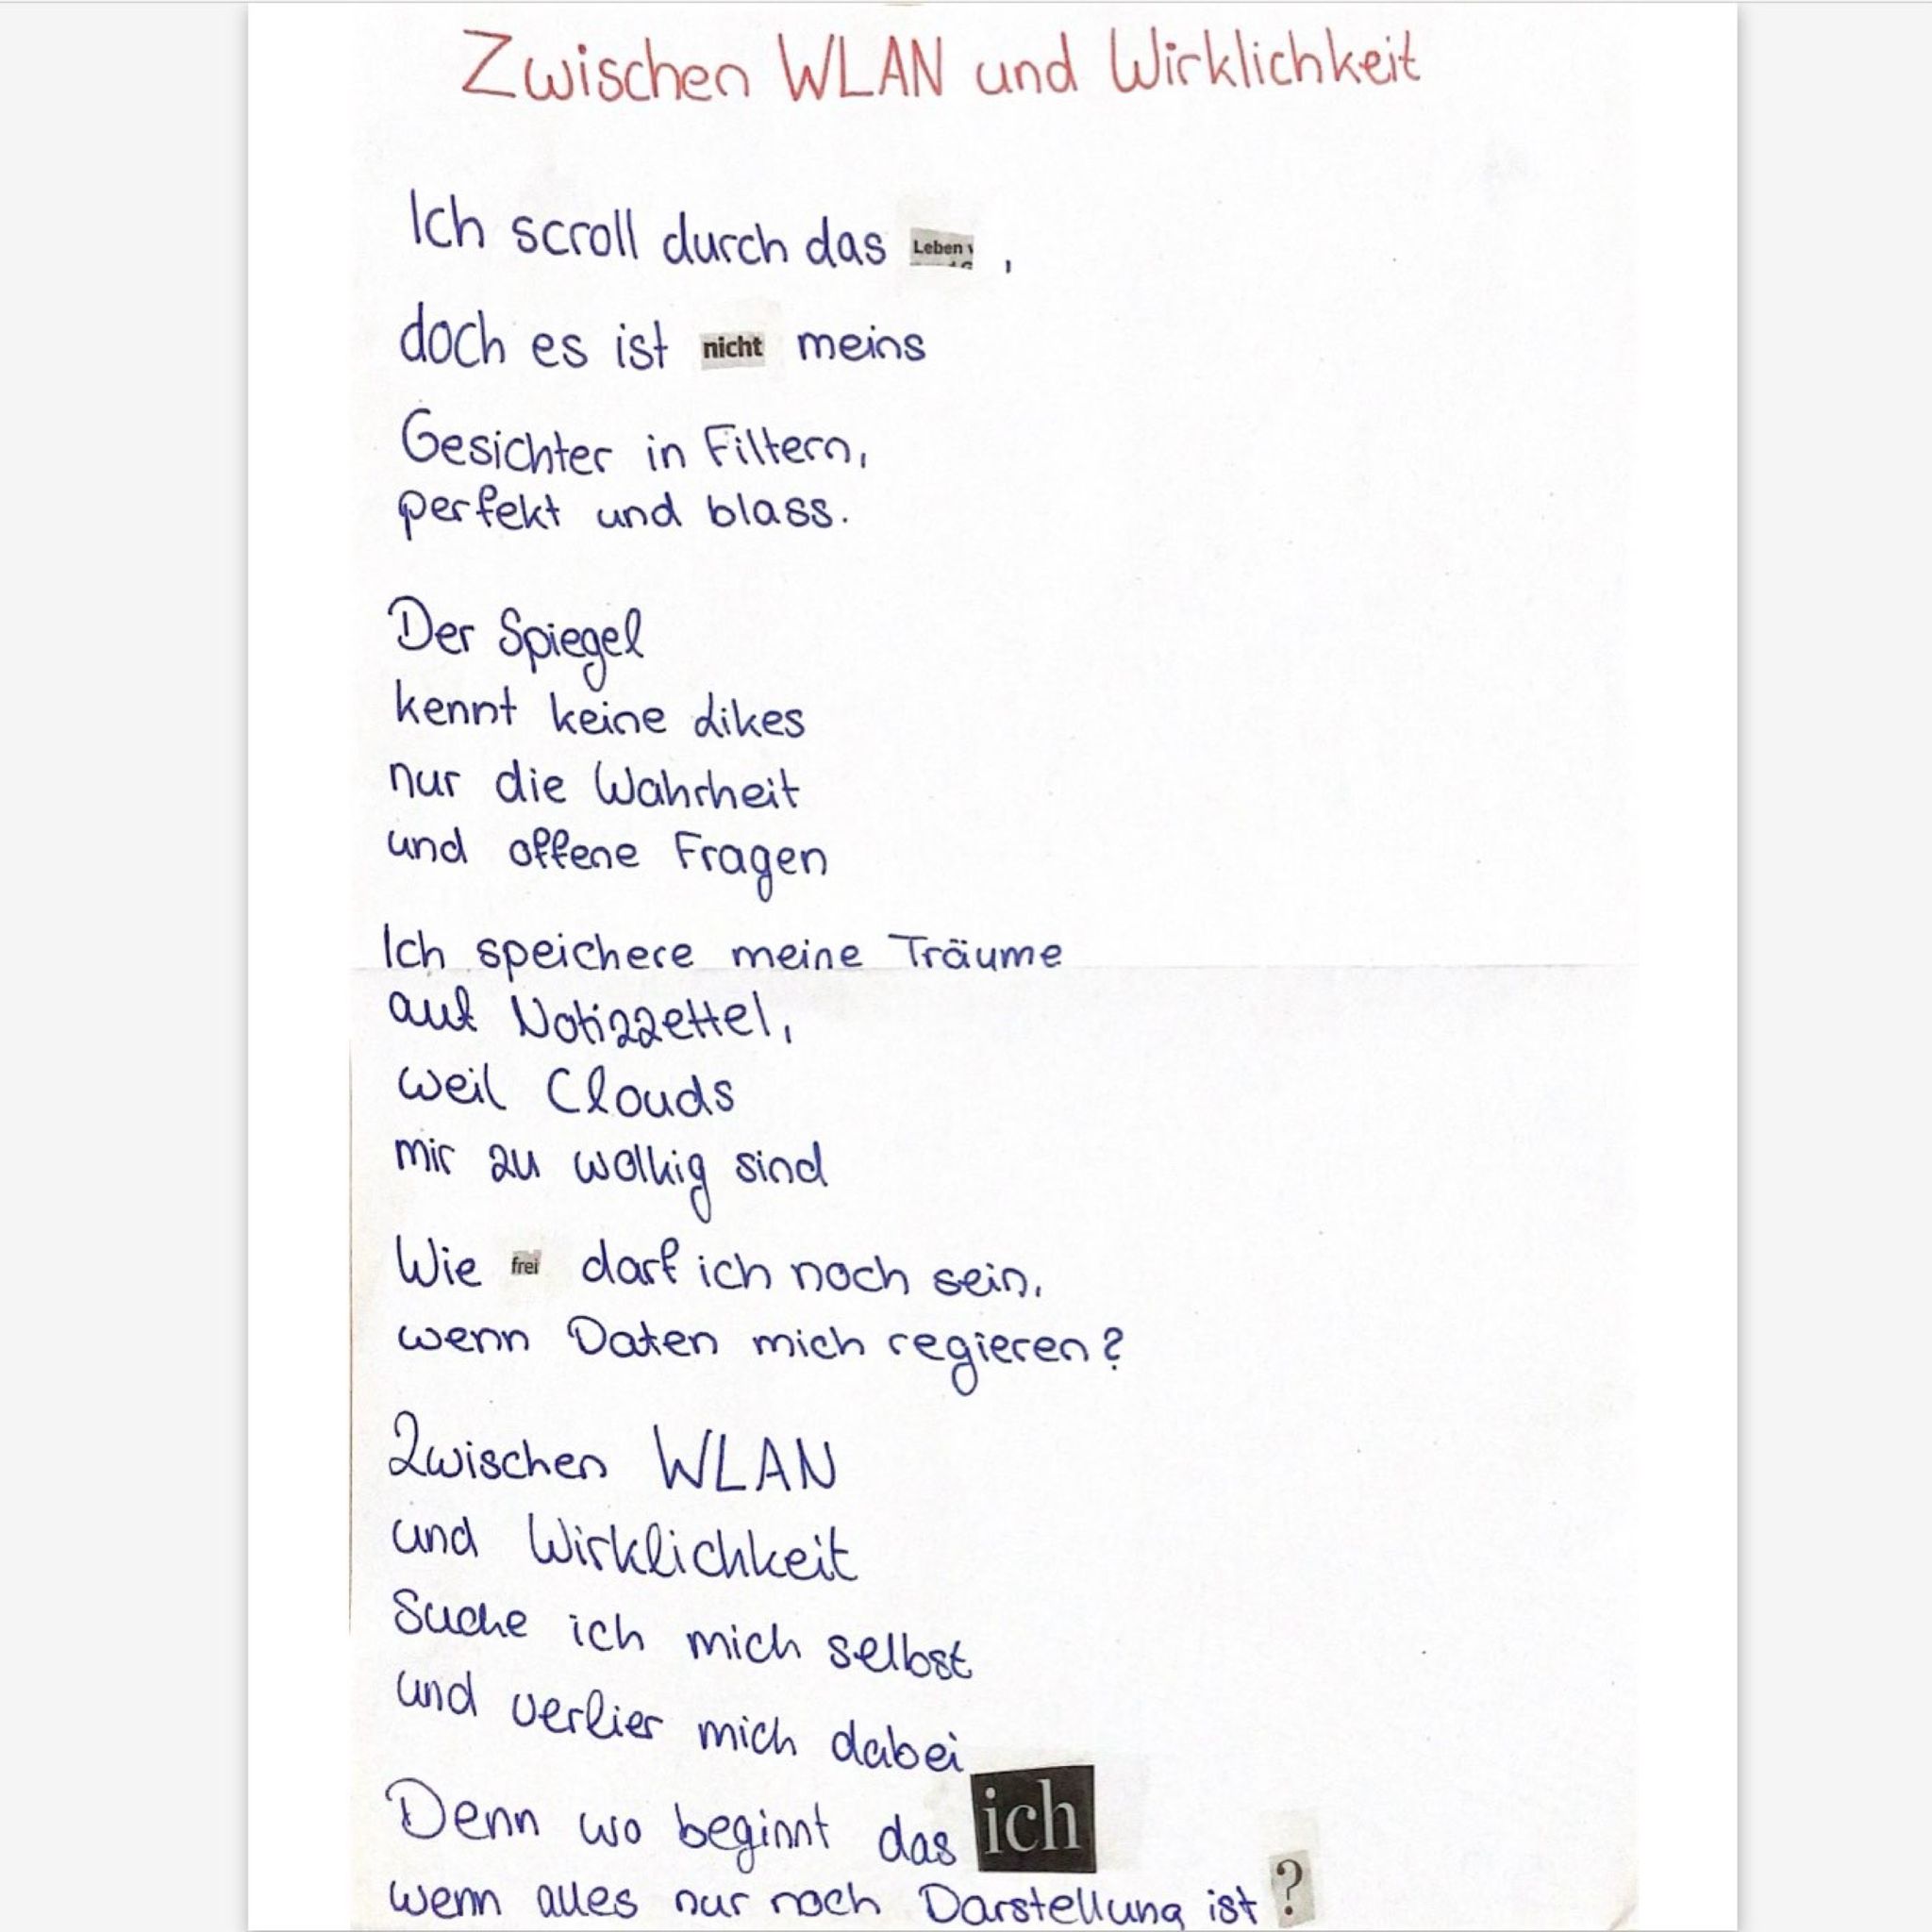 Zwischen WLAN und Wirklichkeit
Ich scroll durch das Leben,
doch es ist nicht meins
Gesichter in Filtern,
perfekt und blass.
Der Spiegel
kennt keine Likes
nur die Wahrheit
und offene Fragen
Ich speichere meine Träume
auf Notizzettel,
weil Clouds
mir zu wolkig sind
Wie frei darf ich noch sein,
wenn Daten mich regieren?
Zwischen WLAN
und Wirklichkeit
Suche ich mich selbst
und verlier mich dabei
Denn wo beginnt das ich
wenn alles nur noch Darstellung ist?